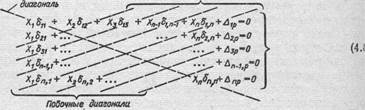 диагональ
X₁δ₁₁ + X₂δ₁₂ + X₃δ₁₃ + Xₙ₋₁δ₁,ₙ₋₁ + Xₙδ₁,ₙ + Δ₁ₚ=0
X₁δ₂₁ + ... ... + Xₙδ₂,ₙ + Δ₂ₚ=0
X₁δ₃₁ + ... ... + Δ₃ₚ=0
X₁δₙ₋₁,₁ + ... ... + Δₙ₋₁,ₚ=0
X₁δₙ,₁ + Xₙδₙ,₂ + ... Xₙδₙ,ₙ + Δₙₚ=0
(4.
Побочные диагонали